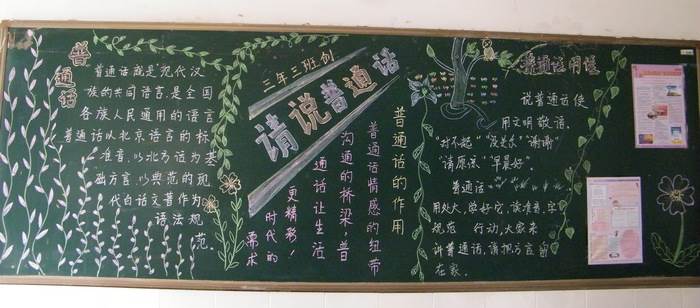 普通话
普通话就是"现代汉
族的共同语言,是全国
各族人民通用的语言
普通话以北京语言的标
准音,以北方话为基
础方言,以典范的现
代白话文著作为
语法规
范
三年三班创
请说普通话
普通话的作用
普通话情感的纽带
沟通的桥梁,普
通话让生活
更精彩!
时代的
需求
说普通话使
用文明敬语。
"对不起" "没关系" "谢谢"
"请原谅" "早晨好"。
普通话
用处大,学好它,读准音,字
规范 行动,大家来
讲普通话,请把方言留
在家。